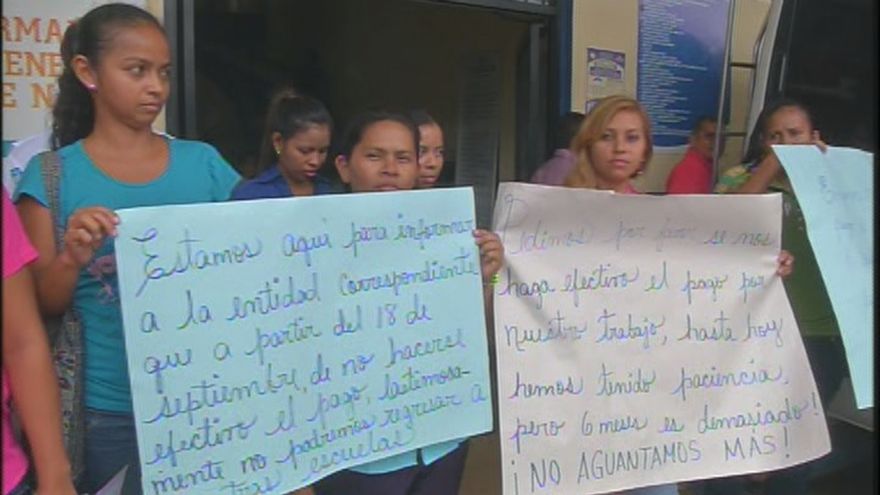 RMA
ENE
E N
Estamos aquí para informar
a la entidad correspondiente
que a partir del 18 de
septiembre, de no hacerse
efectivo el pago, lastimosa-
mente no podremos regresar a
tras escuelas
Pedimos por favor se nos
haga efectivo el pago por
nuestro trabajo, hasta hoy
hemos tenido paciencia,
pero 6 meses es demasiado!
¡NO AGUANTAMOS MÁS!